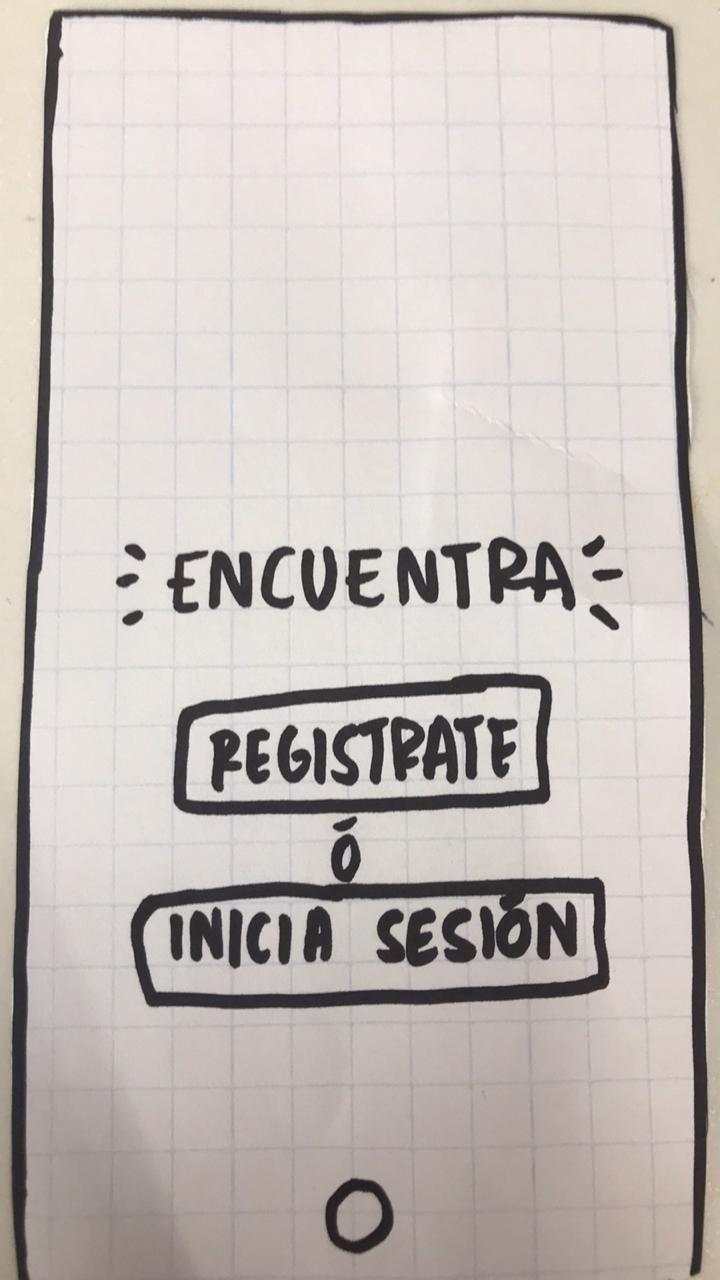 ENCUENTRA
REGISTRATE
Ó
INICIA SESIÓN